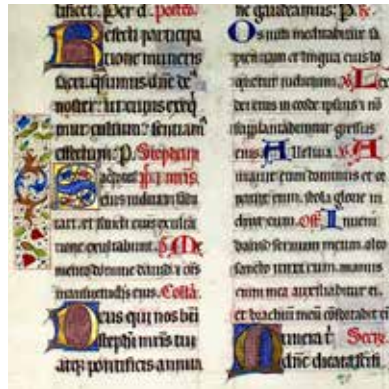 Per d. postco.
Refecti participa
tione muneris
sacri. qsumus dne de
noster: ut cuius exeq
mur cultum: sentiam
effectum. P. Stephani
Sac
eius induam salu
tari. et sancti eius exulta
tione exultabunt. Me
mento domine dauid et ois
mansuetudis eius. Collā.
Deus qui nos bti
stephi mris tui
atq; pontificis annua
ne gaudeamus. P.
Os iusti meditabitur sa
pientiam et lingua eius lo
quetur iudicium. Lex
dei eius in corde ipsius et nō
supplantabuntur gressus
eius. Alleluia. A
eum dominus et or
nauit eum. stola glorie in
duit eum. Off. Inueni
dauid seruum meum oleo
sancto unxi eum. manus
cum mea auxiliabitur ei.
et brachiū meū cōfortabit eū
Munera t Secre.
dne dicata scifi